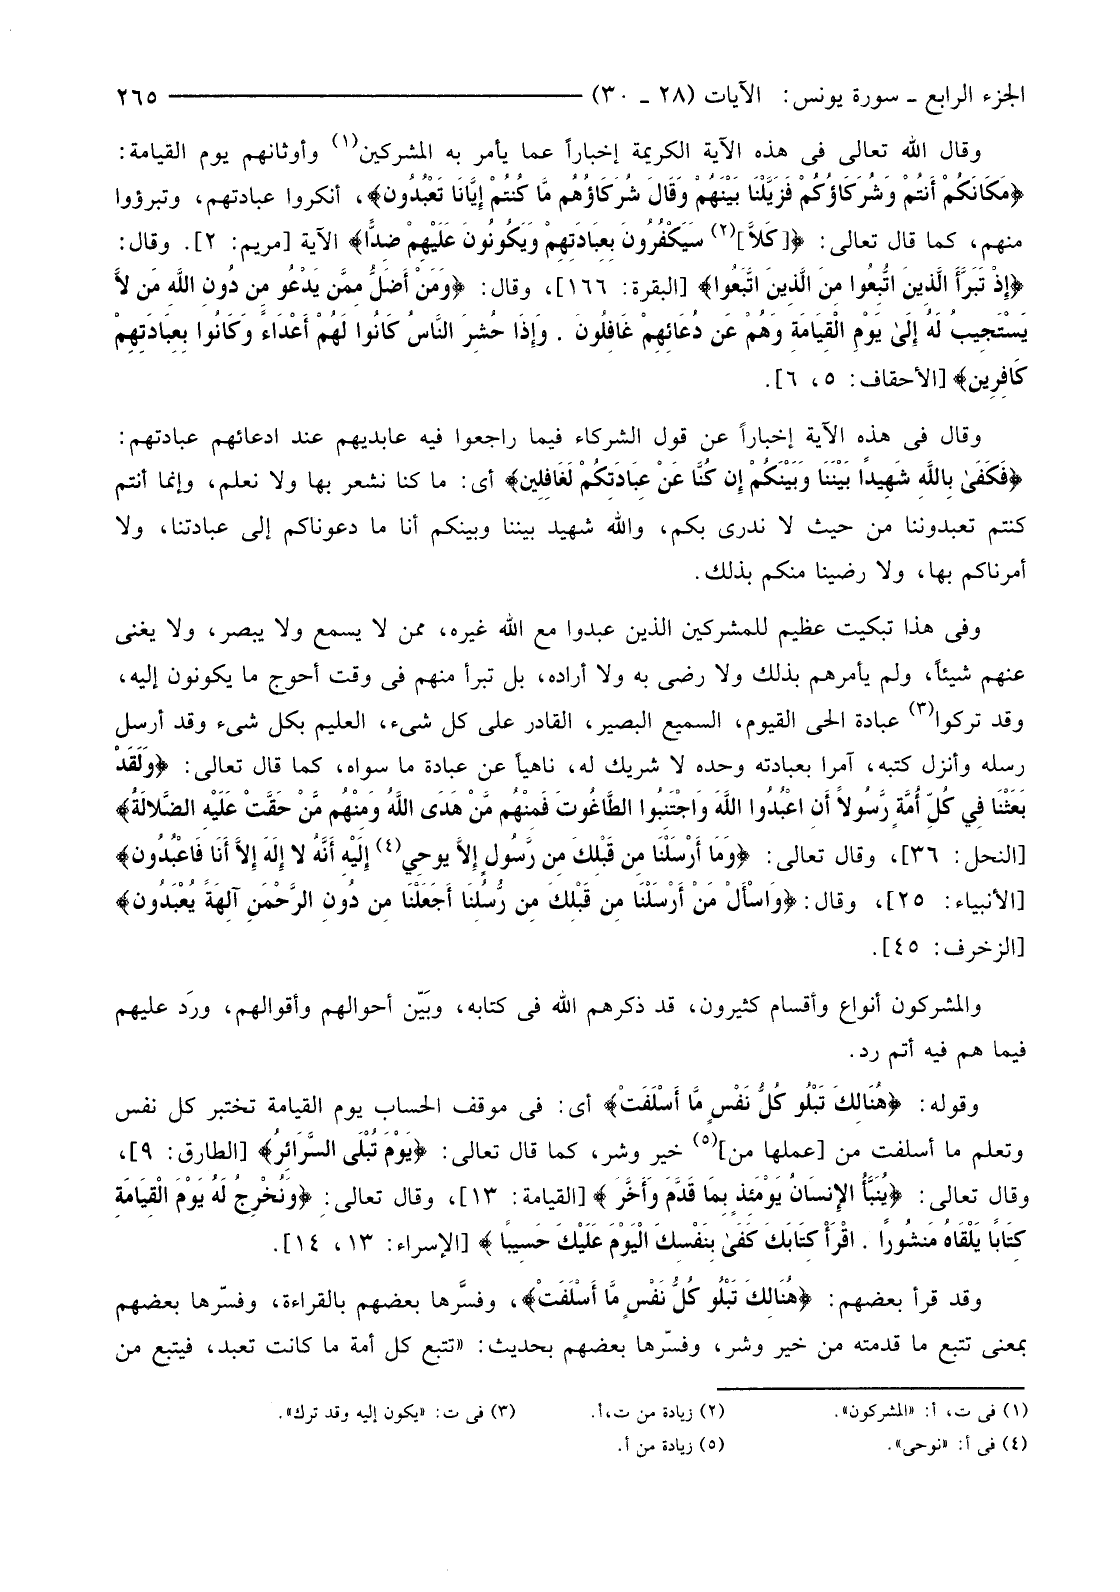 الجزء الرابع ـ سورة يونس: الآيات (٢٨ ـ ٣٠) ٢٦٥
وقال الله تعالى فى هذه الآية الكريمة إخباراً عما يأمر به المشركين(١) وأوثانهم يوم القيامة:
﴿مَكَانَكُمْ أَنتُمْ وَشُرَكَاؤُكُمْ فَزَيَّلْنَا بَيْنَهُمْ وَقَالَ شُرَكَاؤُهُم مَّا كُنتُمْ إِيَّانَا تَعْبُدُون﴾، أنكروا عبادتهم، وتبرؤوا
منهم، كما قال تعالى: ﴿[كَلاَّ](٢) سَيَكْفُرُونَ بِعِبَادَتِهِمْ وَيَكُونُونَ عَلَيْهِمْ ضِدًّا﴾ الآية [مريم: ٢]. وقال:
﴿إِذْ تَبَرَّأَ الَّذِينَ اتُّبِعُوا مِنَ الَّذِينَ اتَّبَعُوا﴾ [البقرة: ١٦٦]، وقال: ﴿وَمَنْ أَضَلُّ مِمَّن يَدْعُو مِن دُونِ اللَّهِ مَن لاَّ
يَسْتَجِيبُ لَهُ إِلَىٰ يَوْمِ الْقِيَامَةِ وَهُمْ عَن دُعَائِهِمْ غَافِلُونَ . وَإِذَا حُشِرَ النَّاسُ كَانُوا لَهُمْ أَعْدَاءً وَكَانُوا بِعِبَادَتِهِمْ
كَافِرِين﴾ [الأحقاف: ٥، ٦].
وقال فى هذه الآية إخباراً عن قول الشركاء فيما راجعوا فيه عابديهم عند ادعائهم عبادتهم:
﴿فَكَفَىٰ بِاللَّهِ شَهِيدًا بَيْنَنَا وَبَيْنَكُمْ إِن كُنَّا عَنْ عِبَادَتِكُمْ لَغَافِلِين﴾ أى: ما كنا نشعر بها ولا نعلم، وإنما أنتم
كنتم تعبدوننا من حيث لا ندرى بكم، والله شهيد بيننا وبينكم أنا ما دعوناكم إلى عبادتنا، ولا
أمرناكم بها، ولا رضينا منكم بذلك.
وفى هذا تبكيت عظيم للمشركين الذين عبدوا مع الله غيره، ممن لا يسمع ولا يبصر، ولا يغنى
عنهم شيئاً، ولم يأمرهم بذلك ولا رضى به ولا أراده، بل تبرأ منهم فى وقت أحوج ما يكونون إليه،
وقد تركوا(٣) عبادة الحى القيوم، السميع البصير، القادر على كل شىء، العليم بكل شىء وقد أرسل
رسله وأنزل كتبه، آمرا بعبادته وحده لا شريك له، ناهياً عن عبادة ما سواه، كما قال تعالى: ﴿وَلَقَدْ
بَعَثْنَا فِي كُلِّ أُمَّةٍ رَّسُولاً أَنِ اعْبُدُوا اللَّهَ وَاجْتَنِبُوا الطَّاغُوتَ فَمِنْهُم مَّنْ هَدَى اللَّهُ وَمِنْهُم مَّنْ حَقَّتْ عَلَيْهِ الضَّلالَةُ﴾
[النحل: ٣٦]، وقال تعالى: ﴿وَمَا أَرْسَلْنَا مِن قَبْلِكَ مِن رَّسُولٍ إِلاَّ يوحي(٤) إِلَيْهِ أَنَّهُ لا إِلَهَ إِلاَّ أَنَا فَاعْبُدُون﴾
[الأنبياء: ٢٥]، وقال: ﴿وَاسْأَلْ مَنْ أَرْسَلْنَا مِن قَبْلِكَ مِن رُّسُلِنَا أَجَعَلْنَا مِن دُونِ الرَّحْمَنِ آلِهَةً يُعْبَدُون﴾
[الزخرف: ٤٥].
والمشركون أنواع وأقسام كثيرون، قد ذكرهم الله فى كتابه، وبَيّن أحوالهم وأقوالهم، ورَد عليهم
فيما هم فيه أتم رد.
وقوله: ﴿هُنَالِكَ تَبْلُو كُلُّ نَفْسٍ مَّا أَسْلَفَتْ﴾ أى: فى موقف الحساب يوم القيامة تختبر كل نفس
وتعلم ما أسلفت من [عملها من](٥) خير وشر، كما قال تعالى: ﴿يَوْمَ تُبْلَى السَّرَائِرُ﴾ [الطارق: ٩]،
وقال تعالى: ﴿يُنَبَّأُ الإِنسَانُ يَوْمَئِذٍ بِمَا قَدَّمَ وَأَخَّرَ﴾ [القيامة: ١٣]، وقال تعالى: ﴿وَنُخْرِجُ لَهُ يَوْمَ الْقِيَامَةِ
كِتَابًا يَلْقَاهُ مَنشُورًا . اقْرَأْ كِتَابَكَ كَفَىٰ بِنَفْسِكَ الْيَوْمَ عَلَيْكَ حَسِيبًا﴾ [الإسراء: ١٣، ١٤].
وقد قرأ بعضهم: ﴿هُنَالِكَ تَبْلُو كُلُّ نَفْسٍ مَّا أَسْلَفَتْ﴾، وفسَّرها بعضهم بالقراءة، وفسّرها بعضهم
بمعنى تتبع ما قدمته من خير وشر، وفسّرها بعضهم بحديث: «تتبع كل أمة ما كانت تعبد، فيتبع من
(١) فى ت، أ: «المشركون». (٢) زيادة من ت،أ. (٣) فى ت: «يكون إليه وقد ترك».
(٤) فى أ: «نوحى». (٥) زيادة من أ.